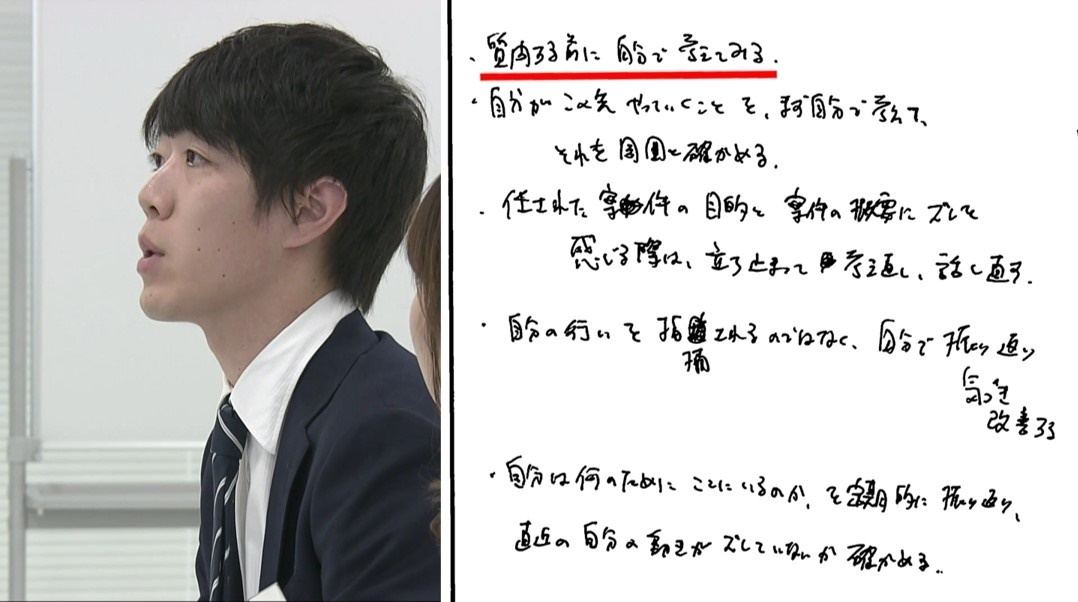 ・質問する前に自分で考えてみる.
・自分がこの先やっていくことを、まず自分で考えて、
それを周囲と確かめる.
・任された案件の目的と案件の概要にズレを
感じる際は、立ち止まって考え直し、話し直す.
・自分の行いを指摘されるのではなく、自分で振り返り
気づき
改善する
・自分は何のためにここにいるのか、を定期的に振り返り、
直近の自分の動きがズレていないか確かめる..